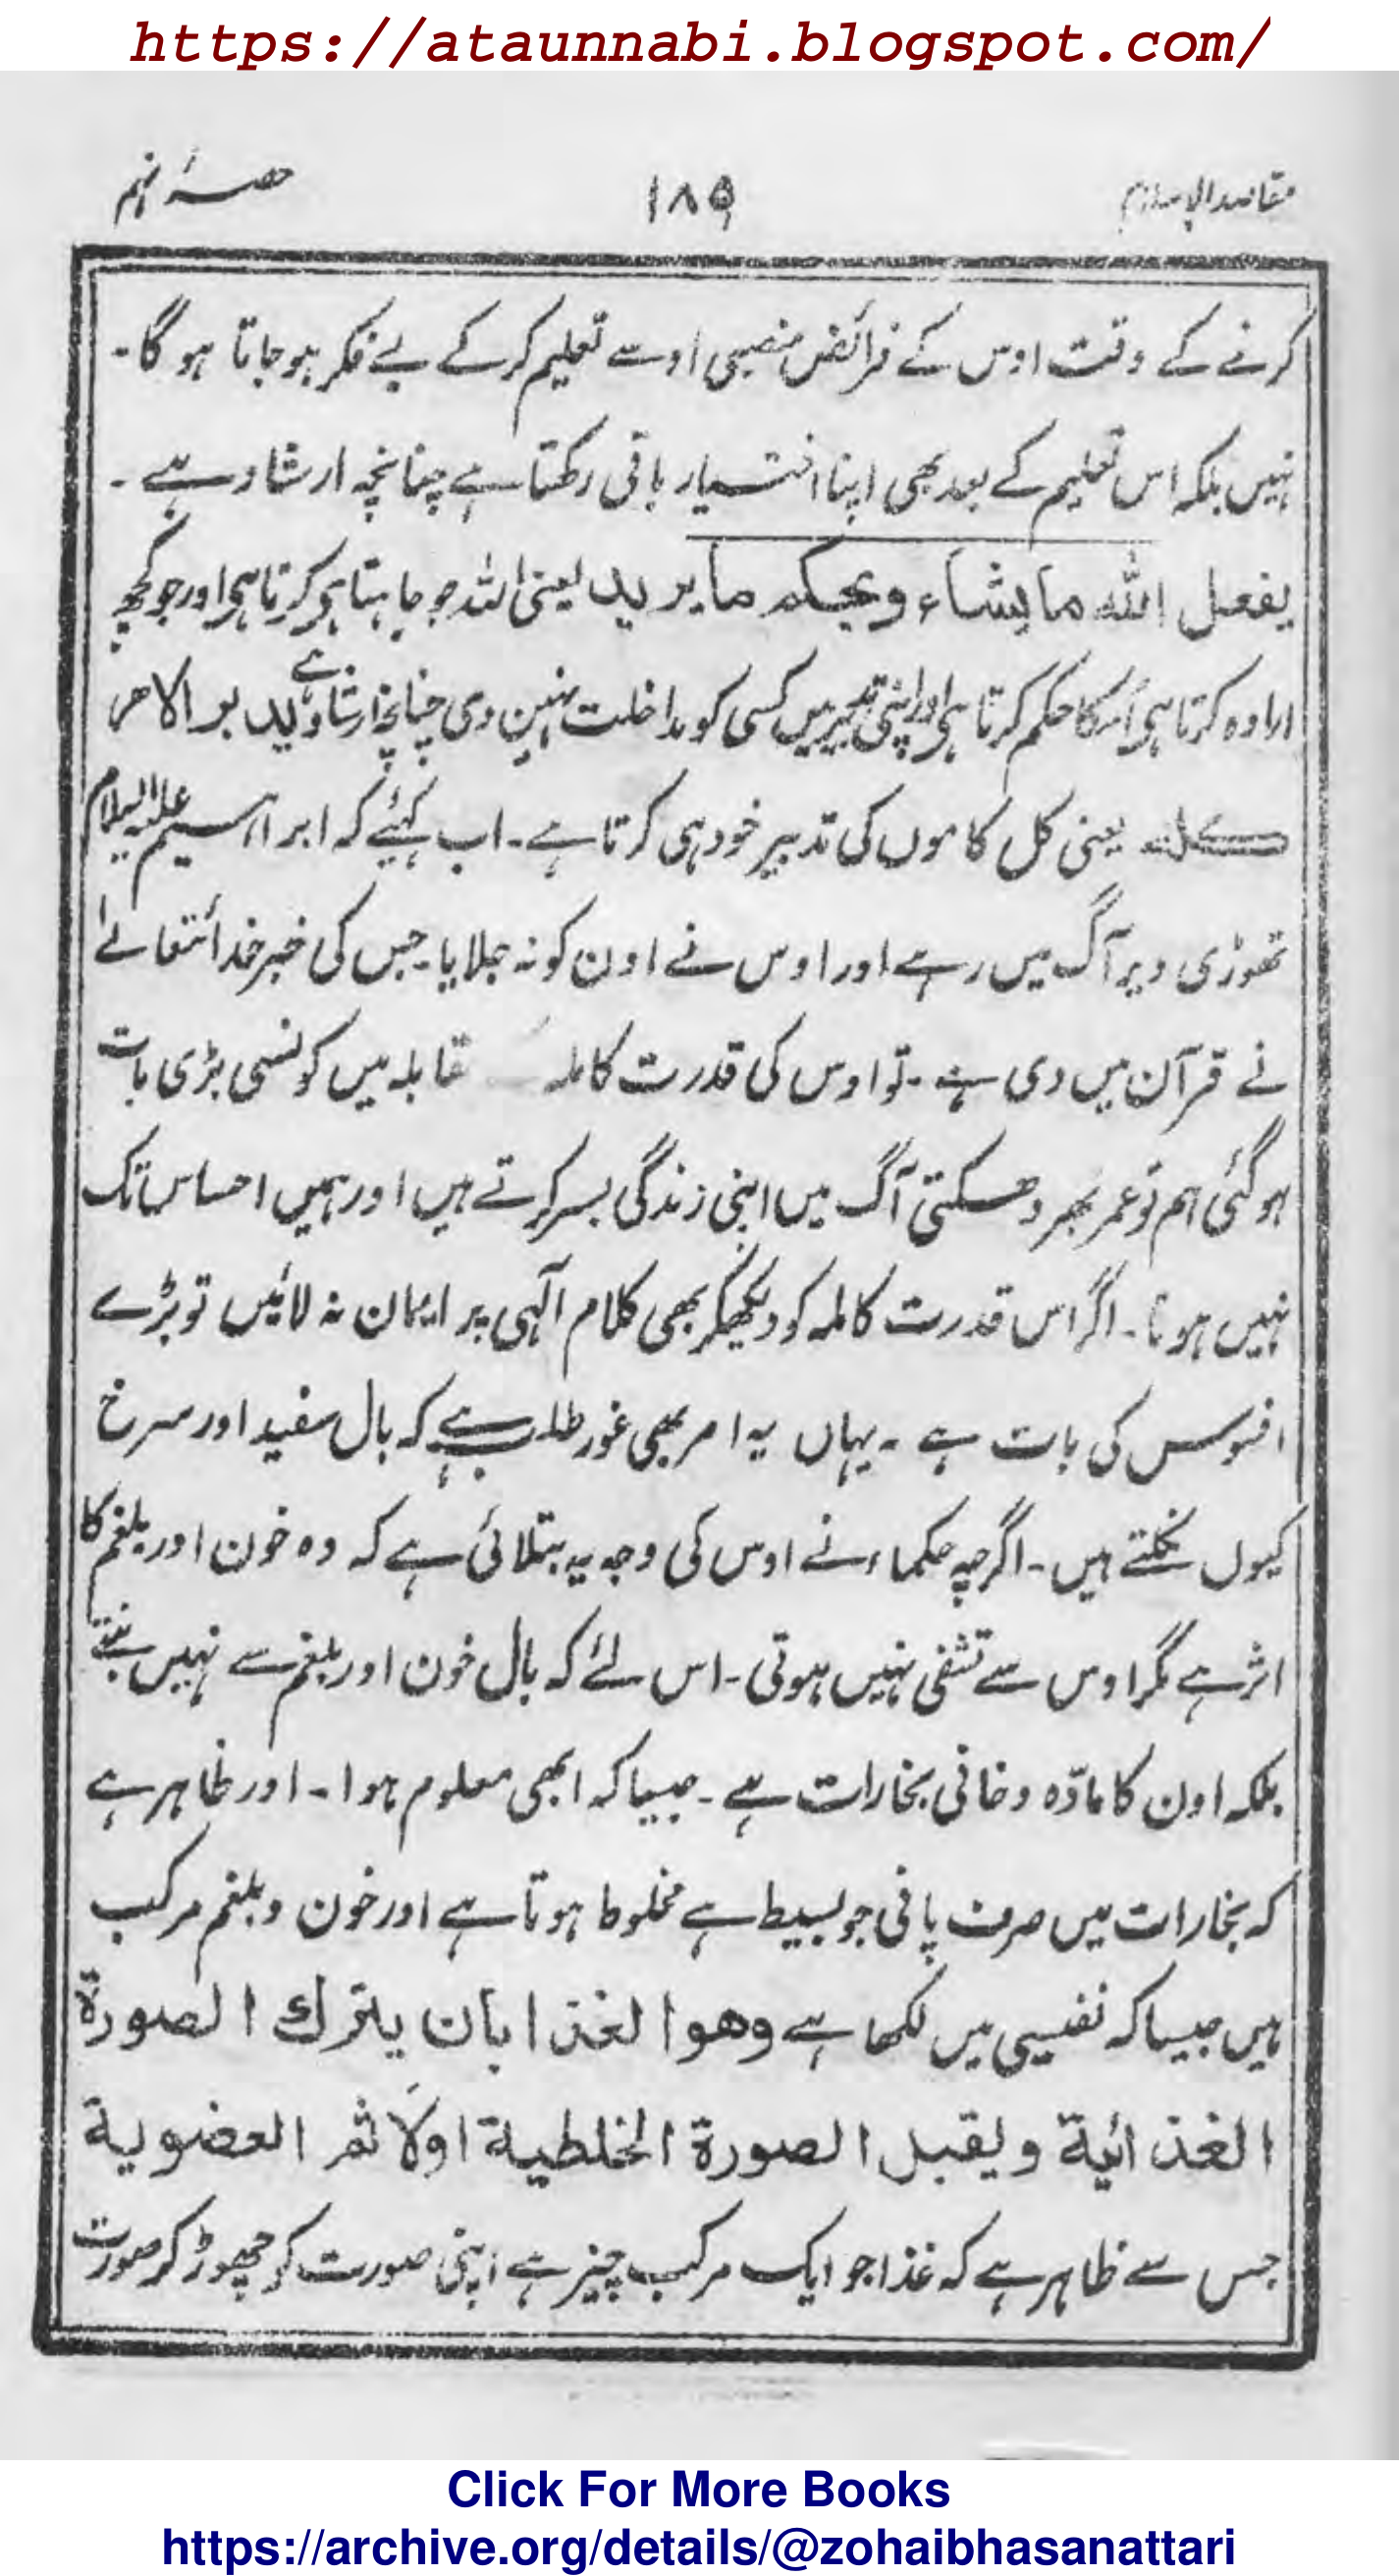 https://ataunnabi.blogspot.com/
مقاصد الاسلام ۱۸۹ حصۂ نہم
کرنے کے وقت اوس کے فرائض منصبی اوسے تعلیم کرکے بے فکر ہوجاتا ہو گا۔
نہیں بلکہ اس تعلیم کے بعد بھی اپنا اختیار باقی رکھتا ہے چنانچہ ارشاد ہے ۔
يفعل الله مايشاء ويحكم مايريد یعنی اللہ جو چاہتا ہی کرتا ہی اور جو کچھ
ارادہ کرتا ہی اسکا حکم کرتا ہی اور اپنی تدبیر میں کسی کو مداخلت نہیں دی چنانچہ ارشاد ہے يدبر الامر
كله یعنی کل کاموں کی تدبیر خود ہی کرتا ہے۔ اب کہئے کہ ابراہیم علیہ السلام
تھوڑی دیر آگ میں رہے اور اوس نے اون کو نہ جلایا۔ جس کی خبر خدائتعالےٰ
نے قرآن میں دی ہے ۔ تو اوس کی قدرت کاملہ قابلہ میں کونسی بڑی بات
ہوگئی ہم تو عمر بھر دھکتی آگ میں اپنی زندگی بسر کرتے ہیں اور ہمیں احساس تک
نہیں ہوتا ۔ اگر اس قدرت کاملہ کو دیکھکر بھی کلام آلہی پر ایمان نہ لائیں تو بڑے
افسوس کی بات ہے ۔ یہاں یہ امر بھی غور طلب ہے کہ بال سفید اور سرخ
کیوں نکلتے ہیں ۔ اگرچہ حکماء نے اوس کی وجہ یہ بتلائی ہے کہ وہ خون اور بلغم کا
اثر ہے مگر اوس سے تشفی نہیں ہوتی ۔ اس لئے کہ بال خون اور بلغم سے نہیں بنتے
بلکہ اون کا مادّہ دخانی بخارات ہے ۔ جیسا کہ ابھی معلوم ہوا ۔ اور ظاہر ہے
کہ بخارات میں صرف پانی جو بسیط ہے مخلوط ہوتا ہے اور خون و بلغم مرکب
ہیں جیسا کہ نفیسی میں لکھا ہے وهو الغذا بان يترك الصورة
الغذائية ويقبل الصورة الخلطية اولا ثم العضوية
جس سے ظاہر ہے کہ غذا جو ایک مرکب چیز ہے اپنی صورت کو چھوڑ کر صورت
Click For More Books
https://archive.org/details/@zohaibhasanattari